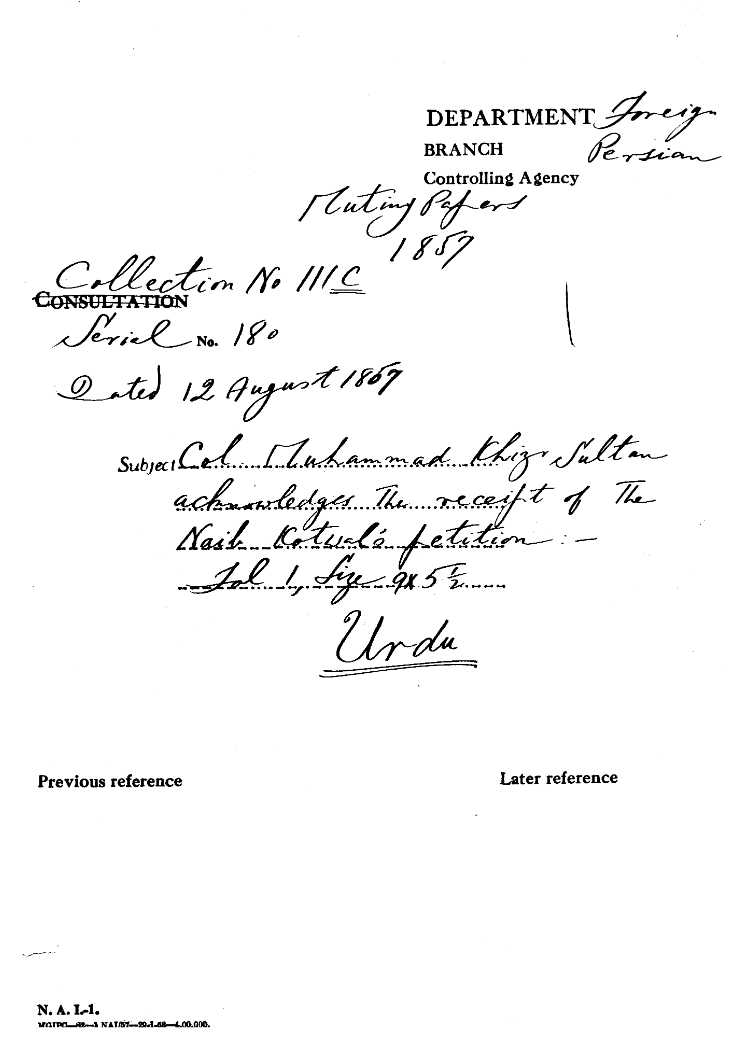 DEPARTMENT Foreign
BRANCH Persian
Controlling Agency
Mutiny Papers
1857
Collection No 111 C
CONSULTATION
Serial No. 180
Dated 12 August 1857
Subject Col. Muhammad Khizr Sultan
acknowledges the receipt of the
Naib Kotwal's petition :-
Fol 1, Size 9x5½
Urdu
Previous reference Later reference
N. A. I.-1.
MGIPC—82—3 NAI/57—29-1-58—4,00,000.